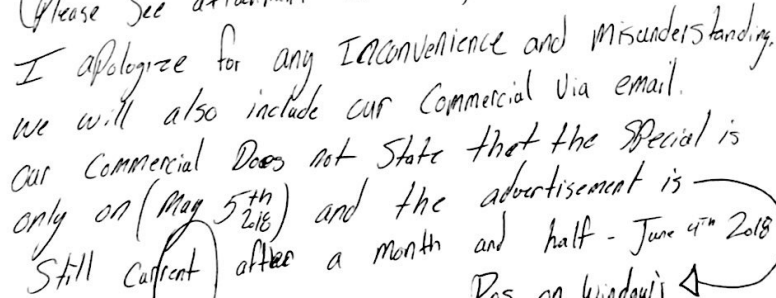 (Please See
I apologize for any Inconvenience and misunderstanding.
we will also include our Commercial Via email.
our Commercial Does not State that the special is
only on (May 5th 2018) and the advertisement is
Still current after a month and half - June 4th 2018
on window's